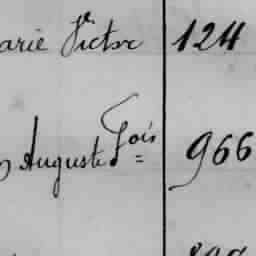 arie Victor 124
Auguste Fois 966